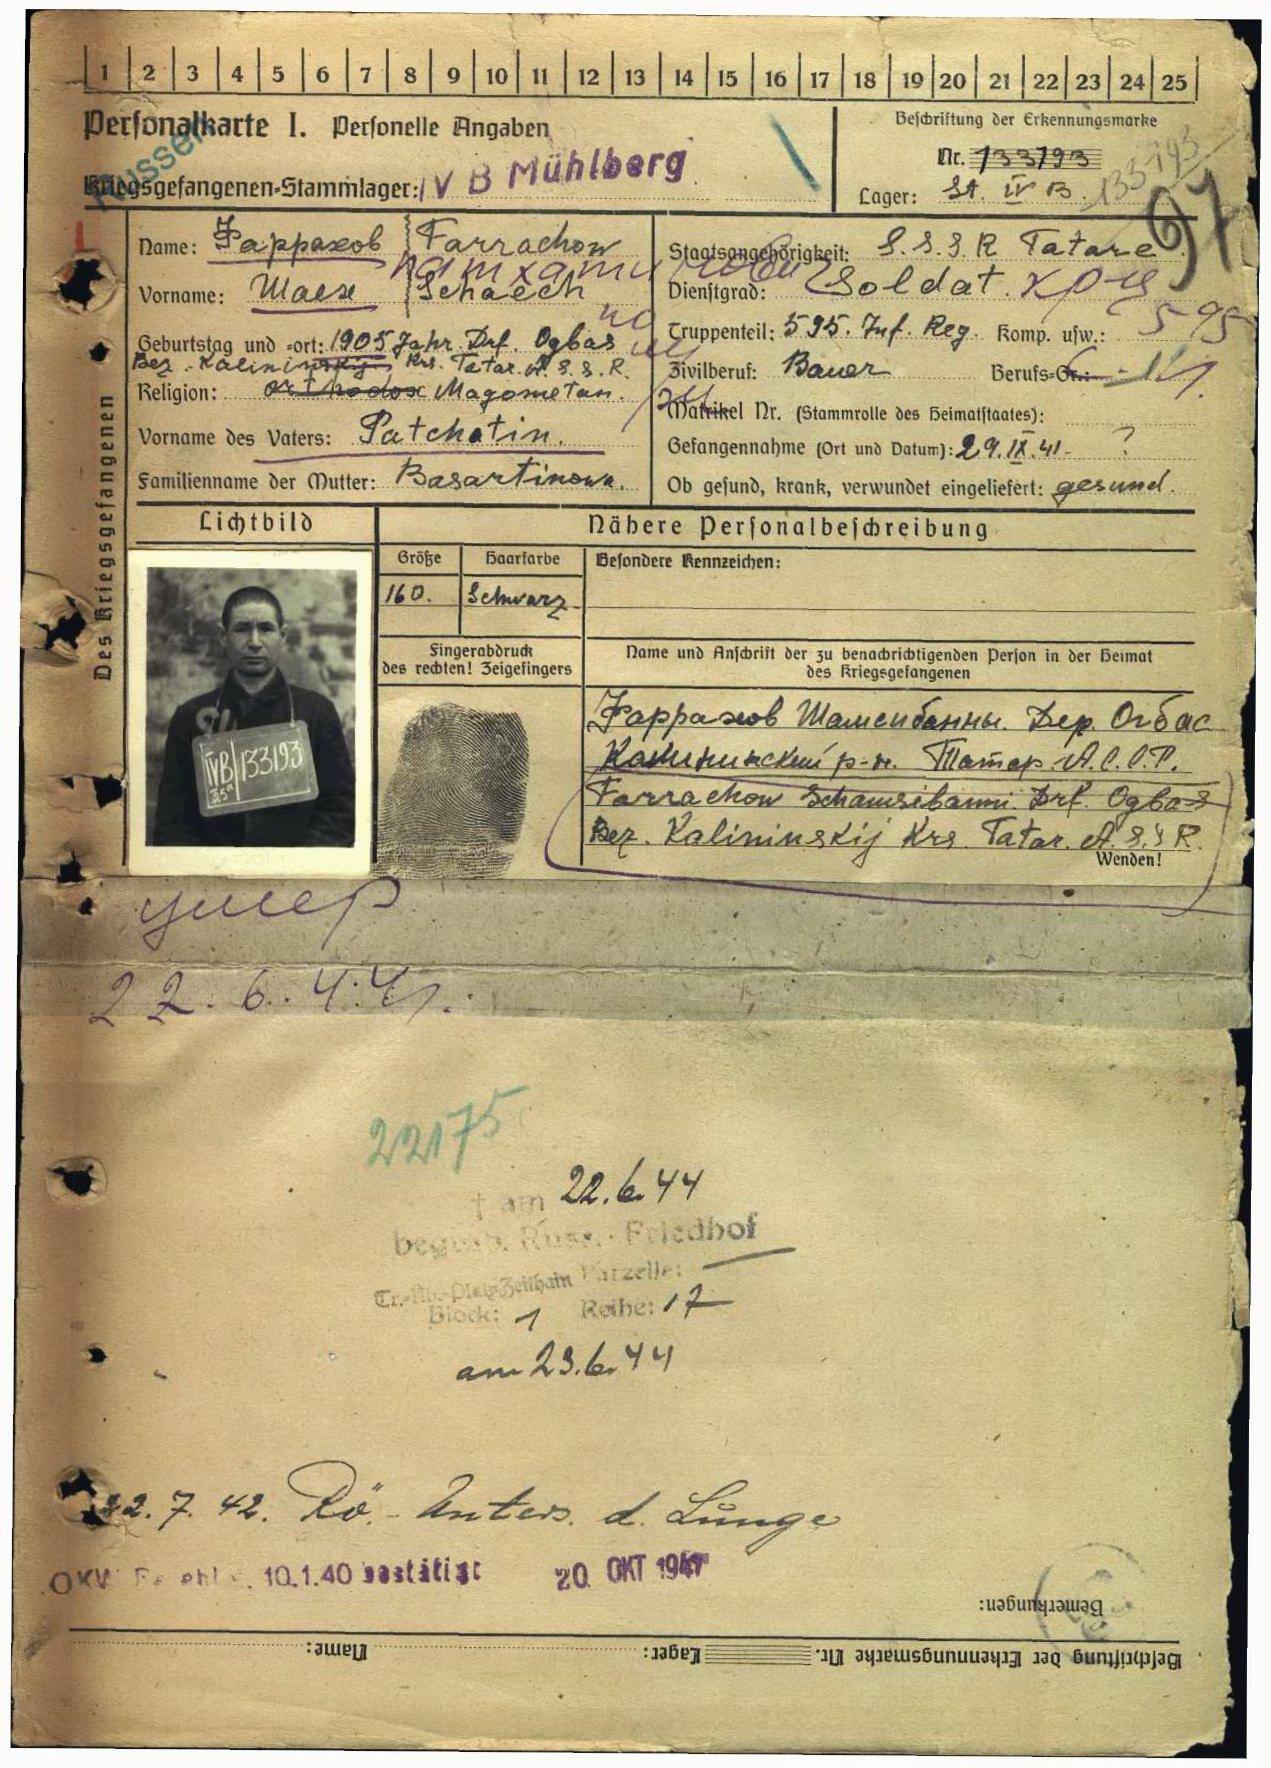 1 2 3 4 5 6 7 8 9 10 11 12 13 14 15 16 17 18 19 20 21 22 23 24 25
Personalkarte I. Personelle Angaben
Beschriftung der Erkennungsmarke
Russen
Nr. 133193
133193
Kriegsgefangenen-Stammlager: IV B Mühlberg
Lager: St. IV B.
97
Des Kriegsgefangenen
Name: Фаррахов Farrachow
Vorname: Шаех Schaech
Geburtstag und -ort: 1905 Jahr. Drf. Ogbas
Bez. Kalininskij Krs. Tatar. A.S.S.R.
Religion: orthodox Magometan.
Vorname des Vaters: Patchatin.
Familienname der Mutter: Basartinowa.
Staatsangehörigkeit: S.S.S.R Tatare
Dienstgrad: Soldat.
Truppenteil: 595. Inf. Reg. Komp. usw.: 595
Zivilberuf: Bauer Berufs-Gr.:
Matrikel Nr. (Stammrolle des Heimatstaates):
Gefangennahme (Ort und Datum): 29.IX.41. ?
Ob gesund, krank, verwundet eingeliefert: gesund.
Lichtbild
Nähere Personalbeschreibung
Größe Haarfarbe Besondere Kennzeichen:
160. Schwarz
Fingerabdruck
des rechten! Zeigefingers
Name und Anschrift der zu benachrichtigenden Person in der Heimat
des Kriegsgefangenen
IVB 133193
Фаррахов Шамсибанны. Дер. Огбас
Калининский р-н. Татар. А.С.С.Р.
Farrachow Schamsibanni. Drf. Ogbas
Bez. Kalininskij Krs. Tatar. A.S.S.R.
Wenden!
умер
22.6.44г.
22175
† am 22.6.44
begrab. Russ.-Friedhof
Tr.-Üb.-Platz Zeithain Parzelle: —
Block: 1 Reihe: 17
am 23.6.44
22.7.42. Rö.-Unters. d. Lunge
OKW Befehl v. 10.1.40 bestätigt 20. OKT 1941
Bemerkungen:
Beschriftung der Erkennungsmarke Nr. Lager: Name: